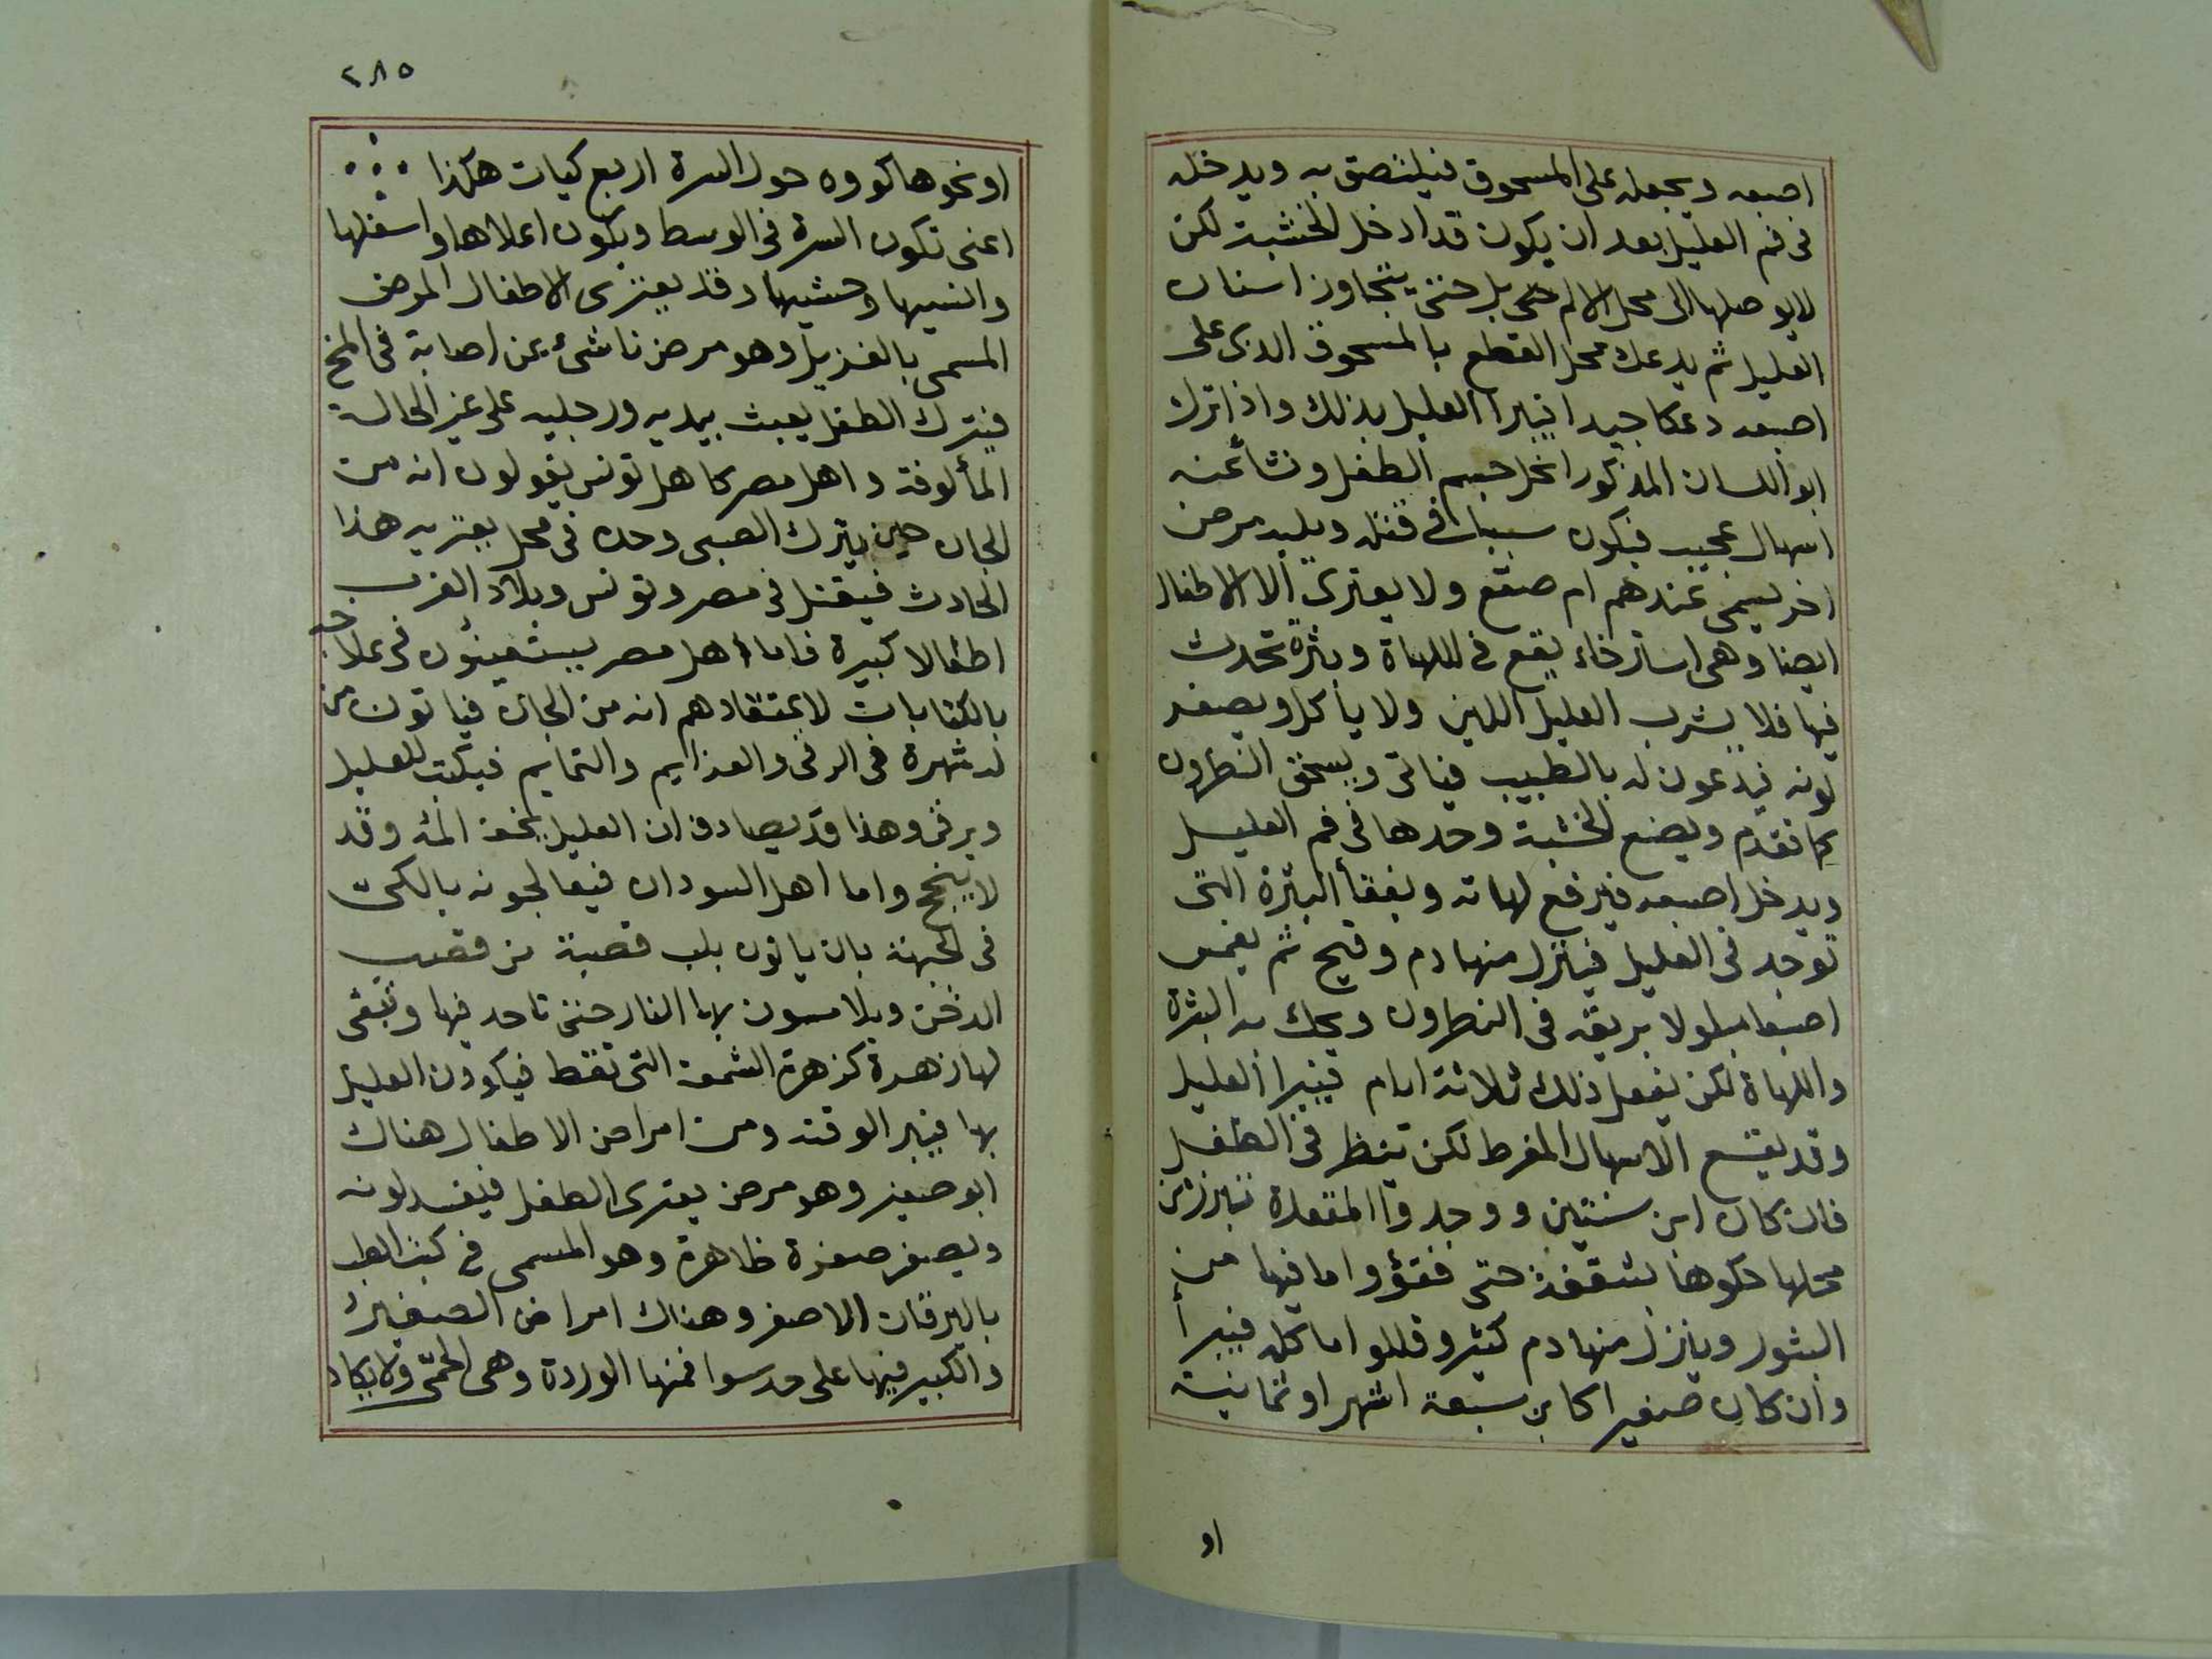 اصبعه ويجعله على المسحوق فيلتصق به ويدخله
فى فم العليل بعد ان يكون قد ادخل الخشبة لكن
لا يوصلها الى محل الالم حتى بل حتى يتجاوز اسنان
العليل ثم يدعك محل القطع بالمسحوق الدى على
اصبعه دعكا جيدا فيبرا العليل بذلك واذا ترك
ابو اللسان المذكور انحل جسم الطفل ونشأ عنه
اسهال عجيب فيكون سببا فى قتله ويليه مرض
اخر يسمى عندهم ام صقع ولا يعترى الا الاطفال
ايضا وهى استرخاء يقع فى اللهاة وبثرة تحدث
فيها فلا يشرب العليل اللبن ولا يأكل ويصفر
لونه فيدعون له بالطبيب فياتى ويسحق النطرون
كما تقدم ويضع الخشبة وحدها فى فم العليل
ويدخل اصبعه فيرفع لهاته ويفقأ البثرة التى
توجد فى العليل فينزل منها دم وقيح ثم يغمس
اصبعا مبلولا بريقه فى النطرون ويحك به البثرة
واللهاة لكن يفعل ذلك ثلاثة ايام فيبرا العليل
وقد يقع الاسهال المفرط لكن ينظر فى الطفل
فان كان ابن سنتين ووجدوا المقعدة تبرز من
محلها حكوها بشقفة حتى فقؤوا ما فيها من
البثور وينزل منها دم كثير وقللوا ما كله فيبرأ
وان كان صغيرا كابن سبعة اشهر او ثمانية
او
٢٨٥
او نحوها كووه حول السرة اربع كيات هكذا
اعنى تكون السرة فى الوسط ويكون اعلاها واسفلها
وانسيها وحشيها وقد يعترى الاطفال المرض
المسمى بالغزيل وهو مرض ناشئ عن اصابة فى المخ
فيترك الطفل يعبث بيديه ورجليه على غير الحالة
المألوفة واهل مصر كاهل تونس يقولون انه من
الجان حين يترك الصبى وحده فى محل يعتريه هذا
الحادث فيقتل فى مصر وتونس وبلاد الغرب
اطفالا كبيرة فاما اهل مصر يستعينون فى علاجه
بالكتابات لاعتقادهم انه من الجان فياتون من
له شهرة فى الرقى والعزايم والتمايم فيكتب للعليل
ويرقى وهذا قد يصادف ان العليل يخف المه وقد
لا ينجح واما اهل السودان فيعالجونه بالكى
فى الجبهة بان ياتون بلب قصبة من قصب
الدخن ويلامسون بها النار حتى تاخد فيها وتبقى
لها زهرة كزهرة الشمعة التى تقط فيكوون العليل
بها فيبر الوقته ومن امراض الاطفال هناك
ابو صفير وهو مرض يعترى الطفل فيفسد لونه
ويصفر صفرة ظاهرة وهو المسمى فى كتب الطب
باليرقان الاصفر وهناك امراض الصغير
والكبير فيها على حد سوا فمنها الوردة وهى الحمّى ولا يكاد